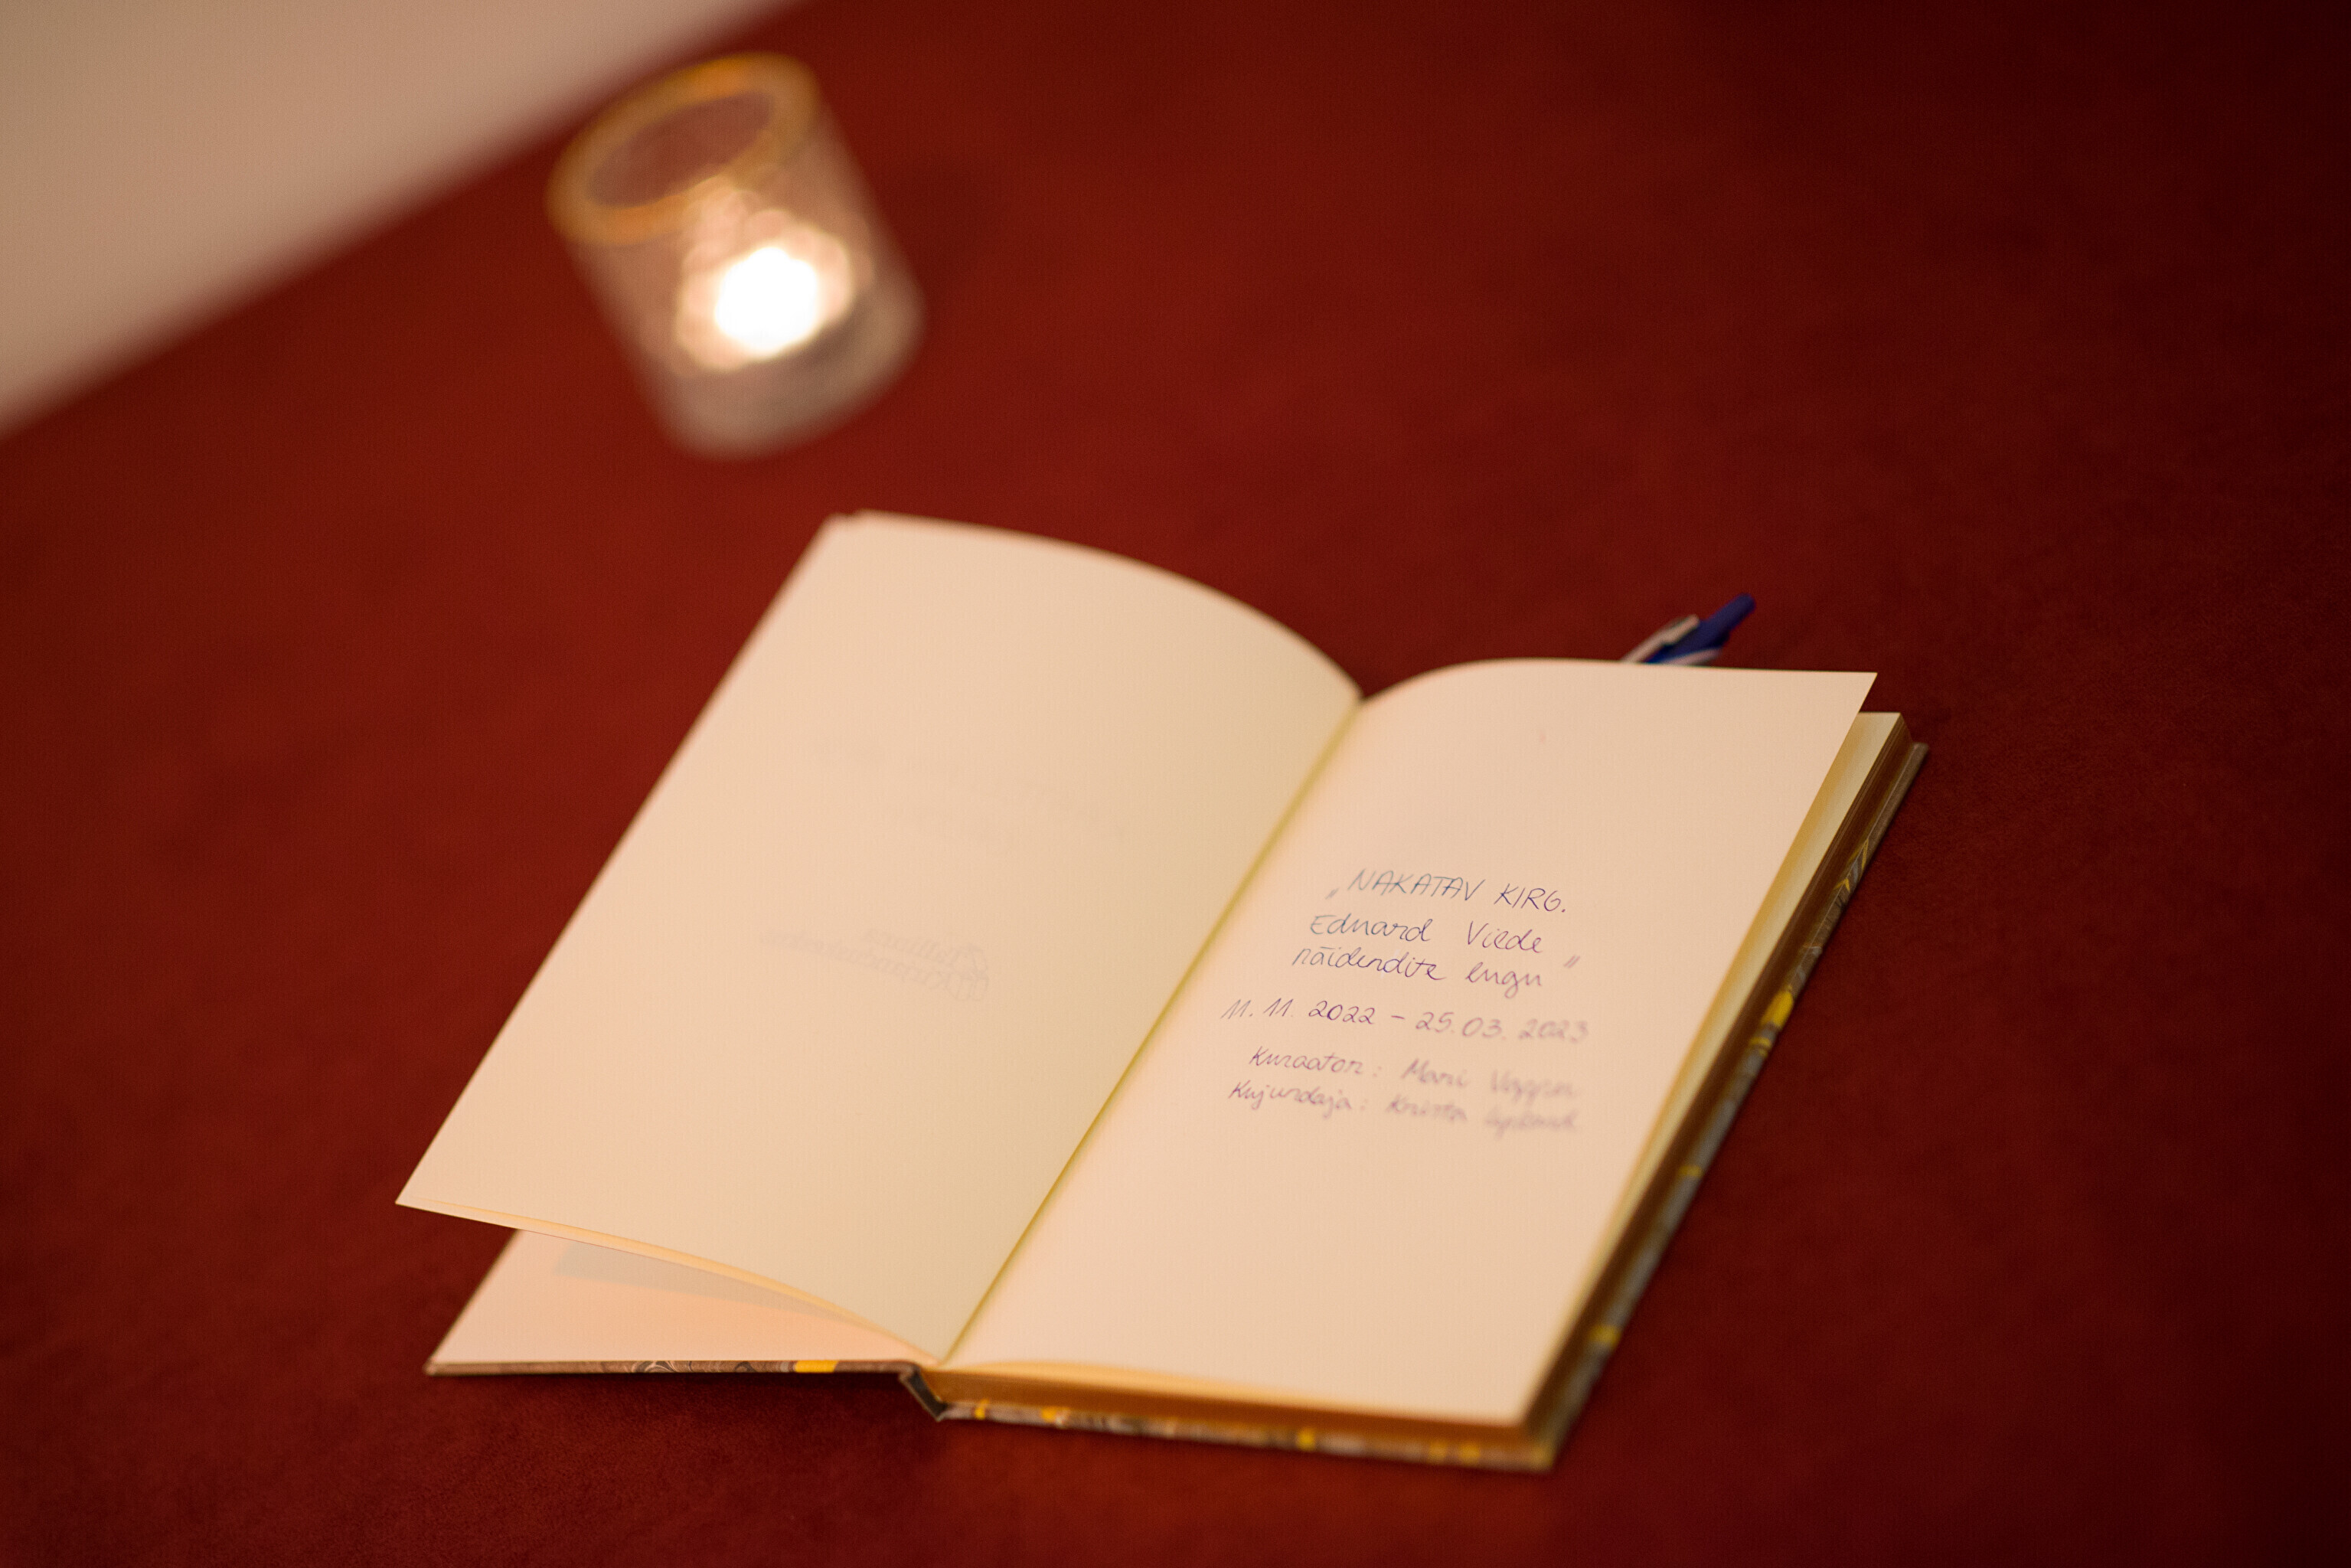 „NAKATAV KIRG.
Eduard Vilde
näidendite lugu"
11.11.2022 - 25.03.2023
Kuraator: Mari
Kujundaja: Krista